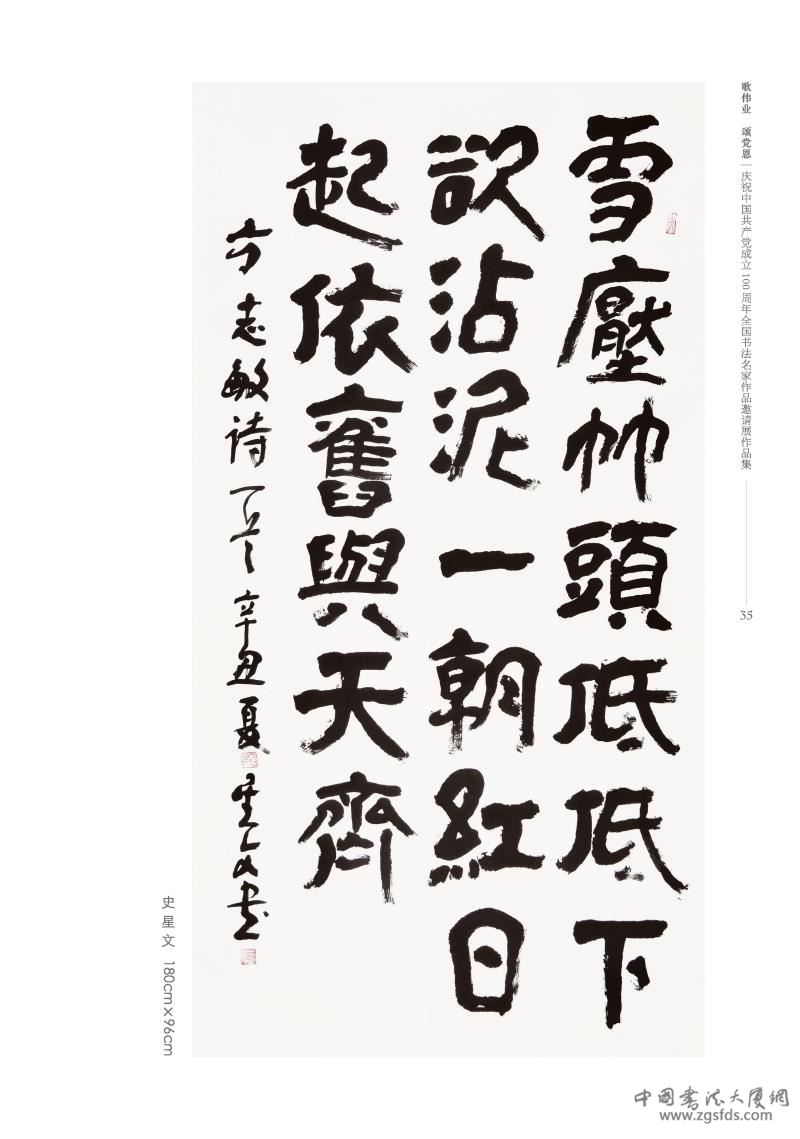 歌伟业 颂党恩 | 庆祝中国共产党成立100周年全国书法名家作品邀请展作品集
35
雪壓竹頭低低下
欲沾泥一朝紅日
起依舊與天齊
方志敏诗一首辛丑夏星文书
史星文 180cm×96cm
中國書法大廈網
www.zgsfds.com